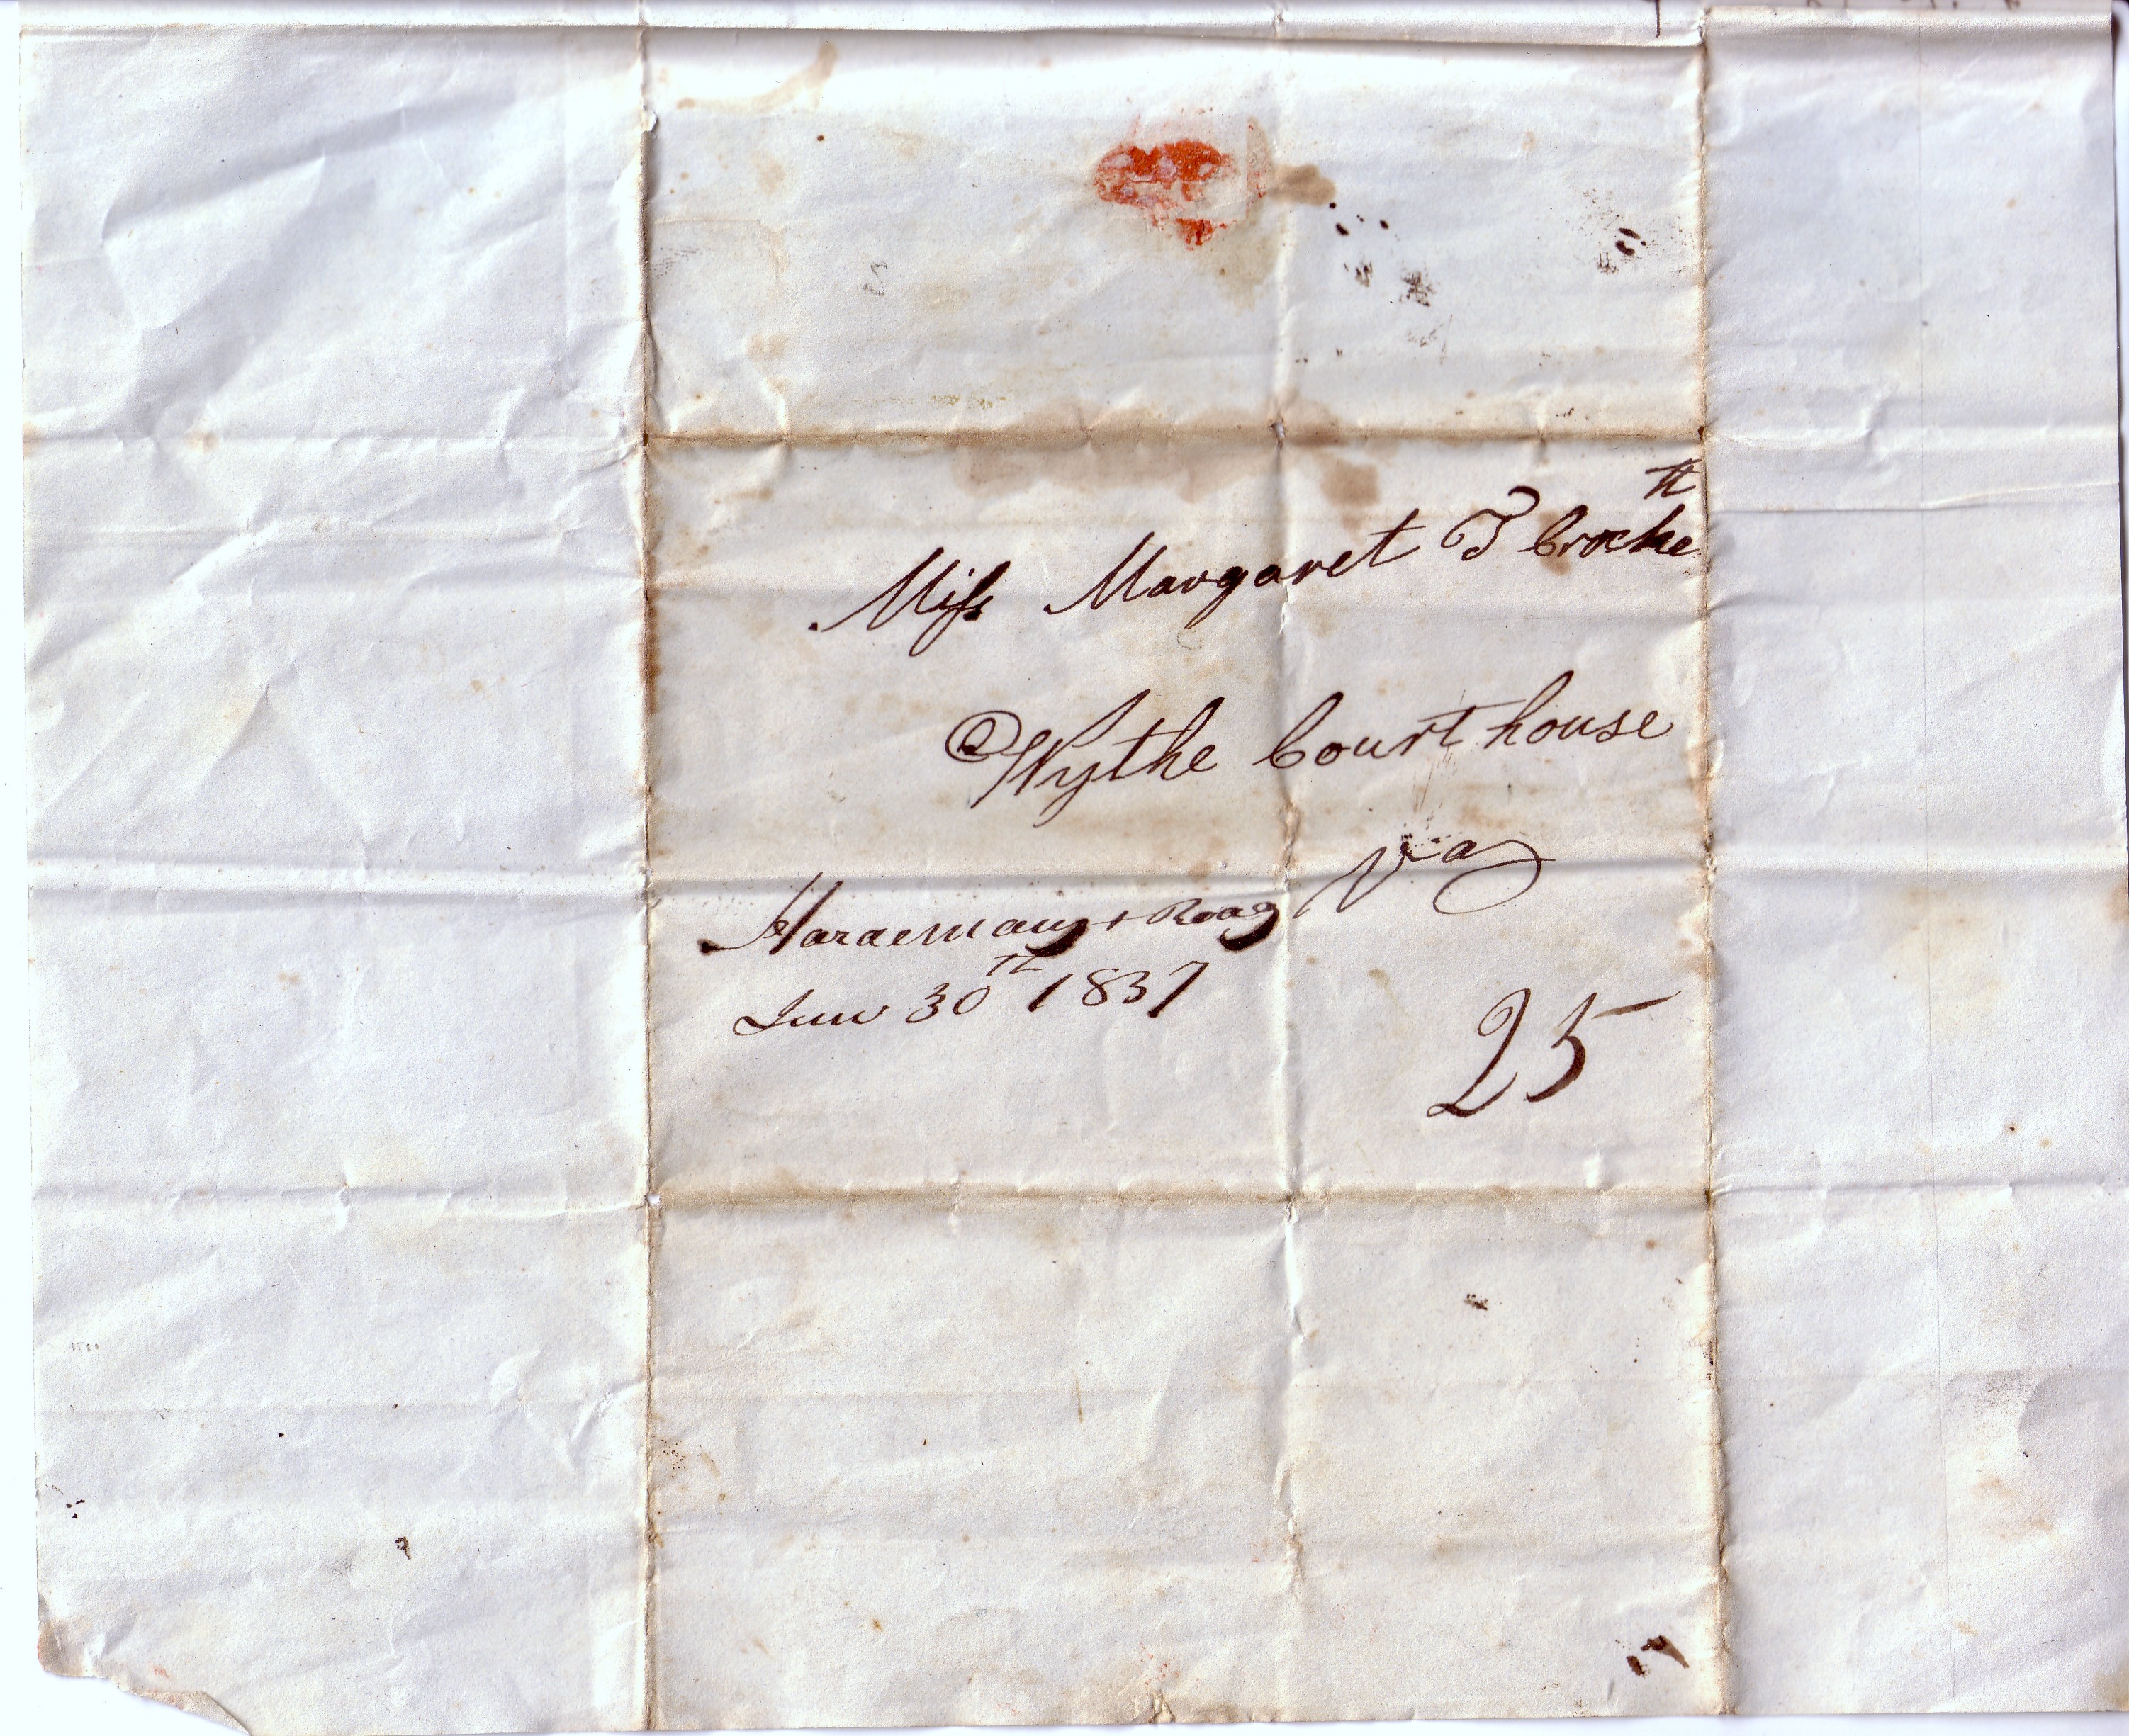 Miss Margaret T Crockett
Wythe Court house
Va
Hardemans + Roads
June 30th 1837
25